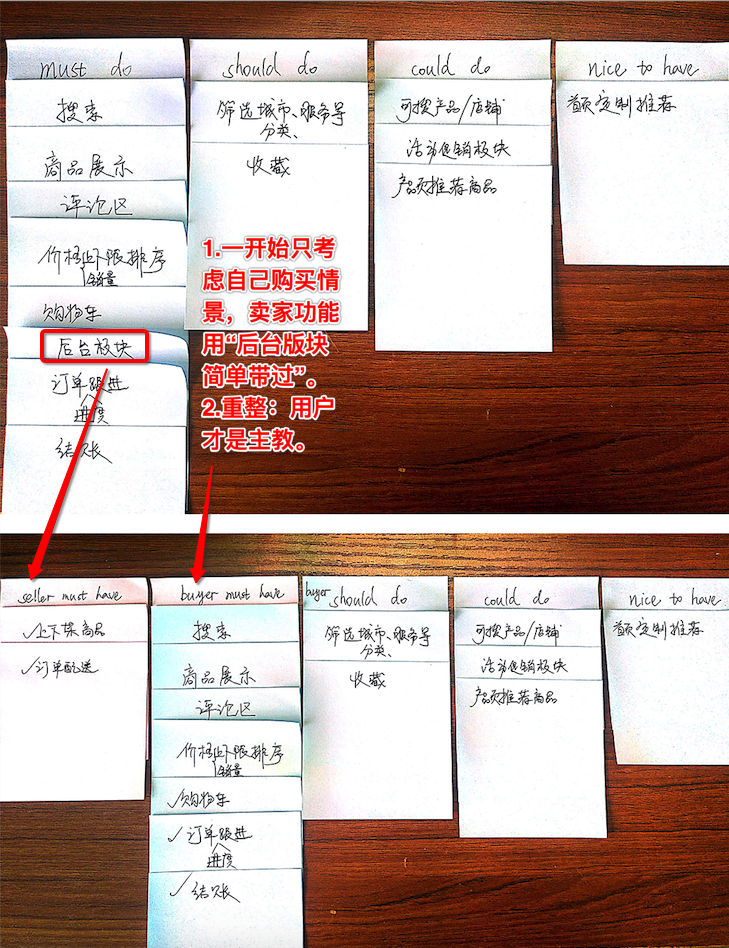 must do
搜索
商品展示
评论区
价格上下限排序
销量
购物车
后台板块
订单跟进
进度
结账
should do
筛选城市、服务等
分类、
收藏
could do
可搜产品/店铺
活动促销板块
产品页推荐商品
nice to have
首页定制推荐
1.一开始只考
虑自己购买情
景，卖家功能
用“后台版块
简单带过”。
2.重整：用户
才是主教。
seller must have
✓上下架商品
✓订单配送
buyer must have
搜索
商品展示
评论区
价格上下限排序
销量
✓购物车
✓订单跟进
进度
✓结账
buyer should do
筛选城市、服务等
分类、
收藏
could do
可搜产品/店铺
活动促销板块
产品页推荐商品
nice to have
首页定制推荐